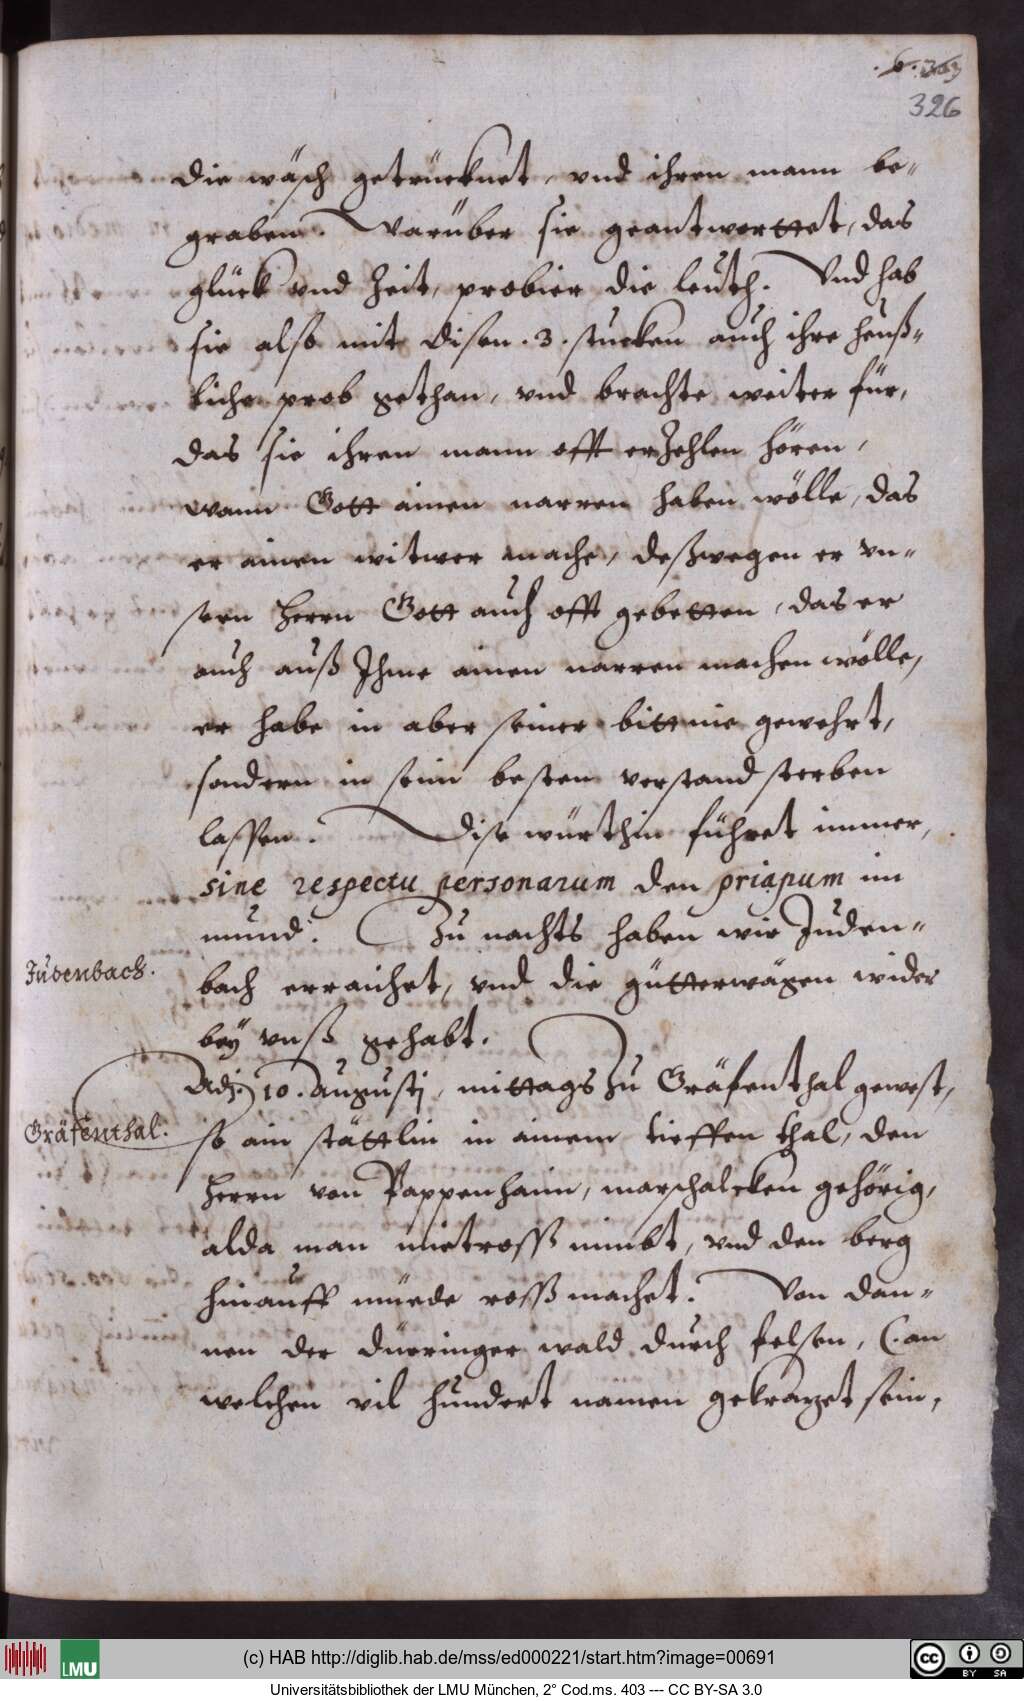 326
die wäsch getrücknet, vnd ihren mann be-
graben. Darüber sie geantworttet, das
glück vnd Zeit, probier die leüth. Vnd hab
sie also mit disen .3. stucken auch ihre heuß-
liche prob gethan, vnd brachte weiter für,
das sie ihren mann offt erzehlen hören,
wann Gott ainen narren haben wölle, das
er ainen witwer mache, deßwegen er vn-
sern herrn Gott auch offt gebetten, das er
auch auß Ihme ainen narren machen wölle,
er habe in aber seiner bitt nie gewehrt,
sondern in seim besten verstand sterben
lassen. Dise würthin führet immer,
sine respectu personarum den priapum im
mund. Zu nachts haben wir Juden-
Judenbach.
bach erraichet, vnd die gütterwägen wider
bey vnß gehabt.
Adj. 10. Augustj, mittags zu Gräfenthal gewest,
Gräfenthal.
so ain stättlin in ainem tieffen thal, den
herrn von Pappenhaim, marschalcken gehörig,
alda man mietross nimbt, vnd den berg
hinauff müede ross machet. Von dan-
nen der düeringer wald durch felsen, (. an
welchen vil hundert namen gekrazet sein,
(c) HAB http://diglib.hab.de/mss/ed000221/start.htm?image=00691
LMU
cc BY SA
Universitätsbibliothek der LMU München, 2° Cod.ms. 403 --- CC BY-SA 3.0